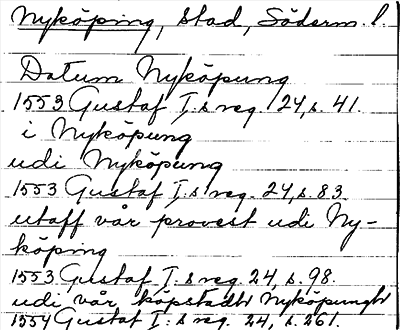 Nyköping, stad, Söderm. l.
Datum Nyköpung
1553 Gustaf I:s reg. 24, s. 41.
i Nyköpung
udi Nyköpung
1553 Gustaf I:s reg. 24, s. 83
utaff vår provest udi Ny-
köping
1553 Gustaf I:s reg. 24, s. 98.
udi vår köpstadt Nyköpungh
1554 Gustaf I:s reg. 24, s. 261.